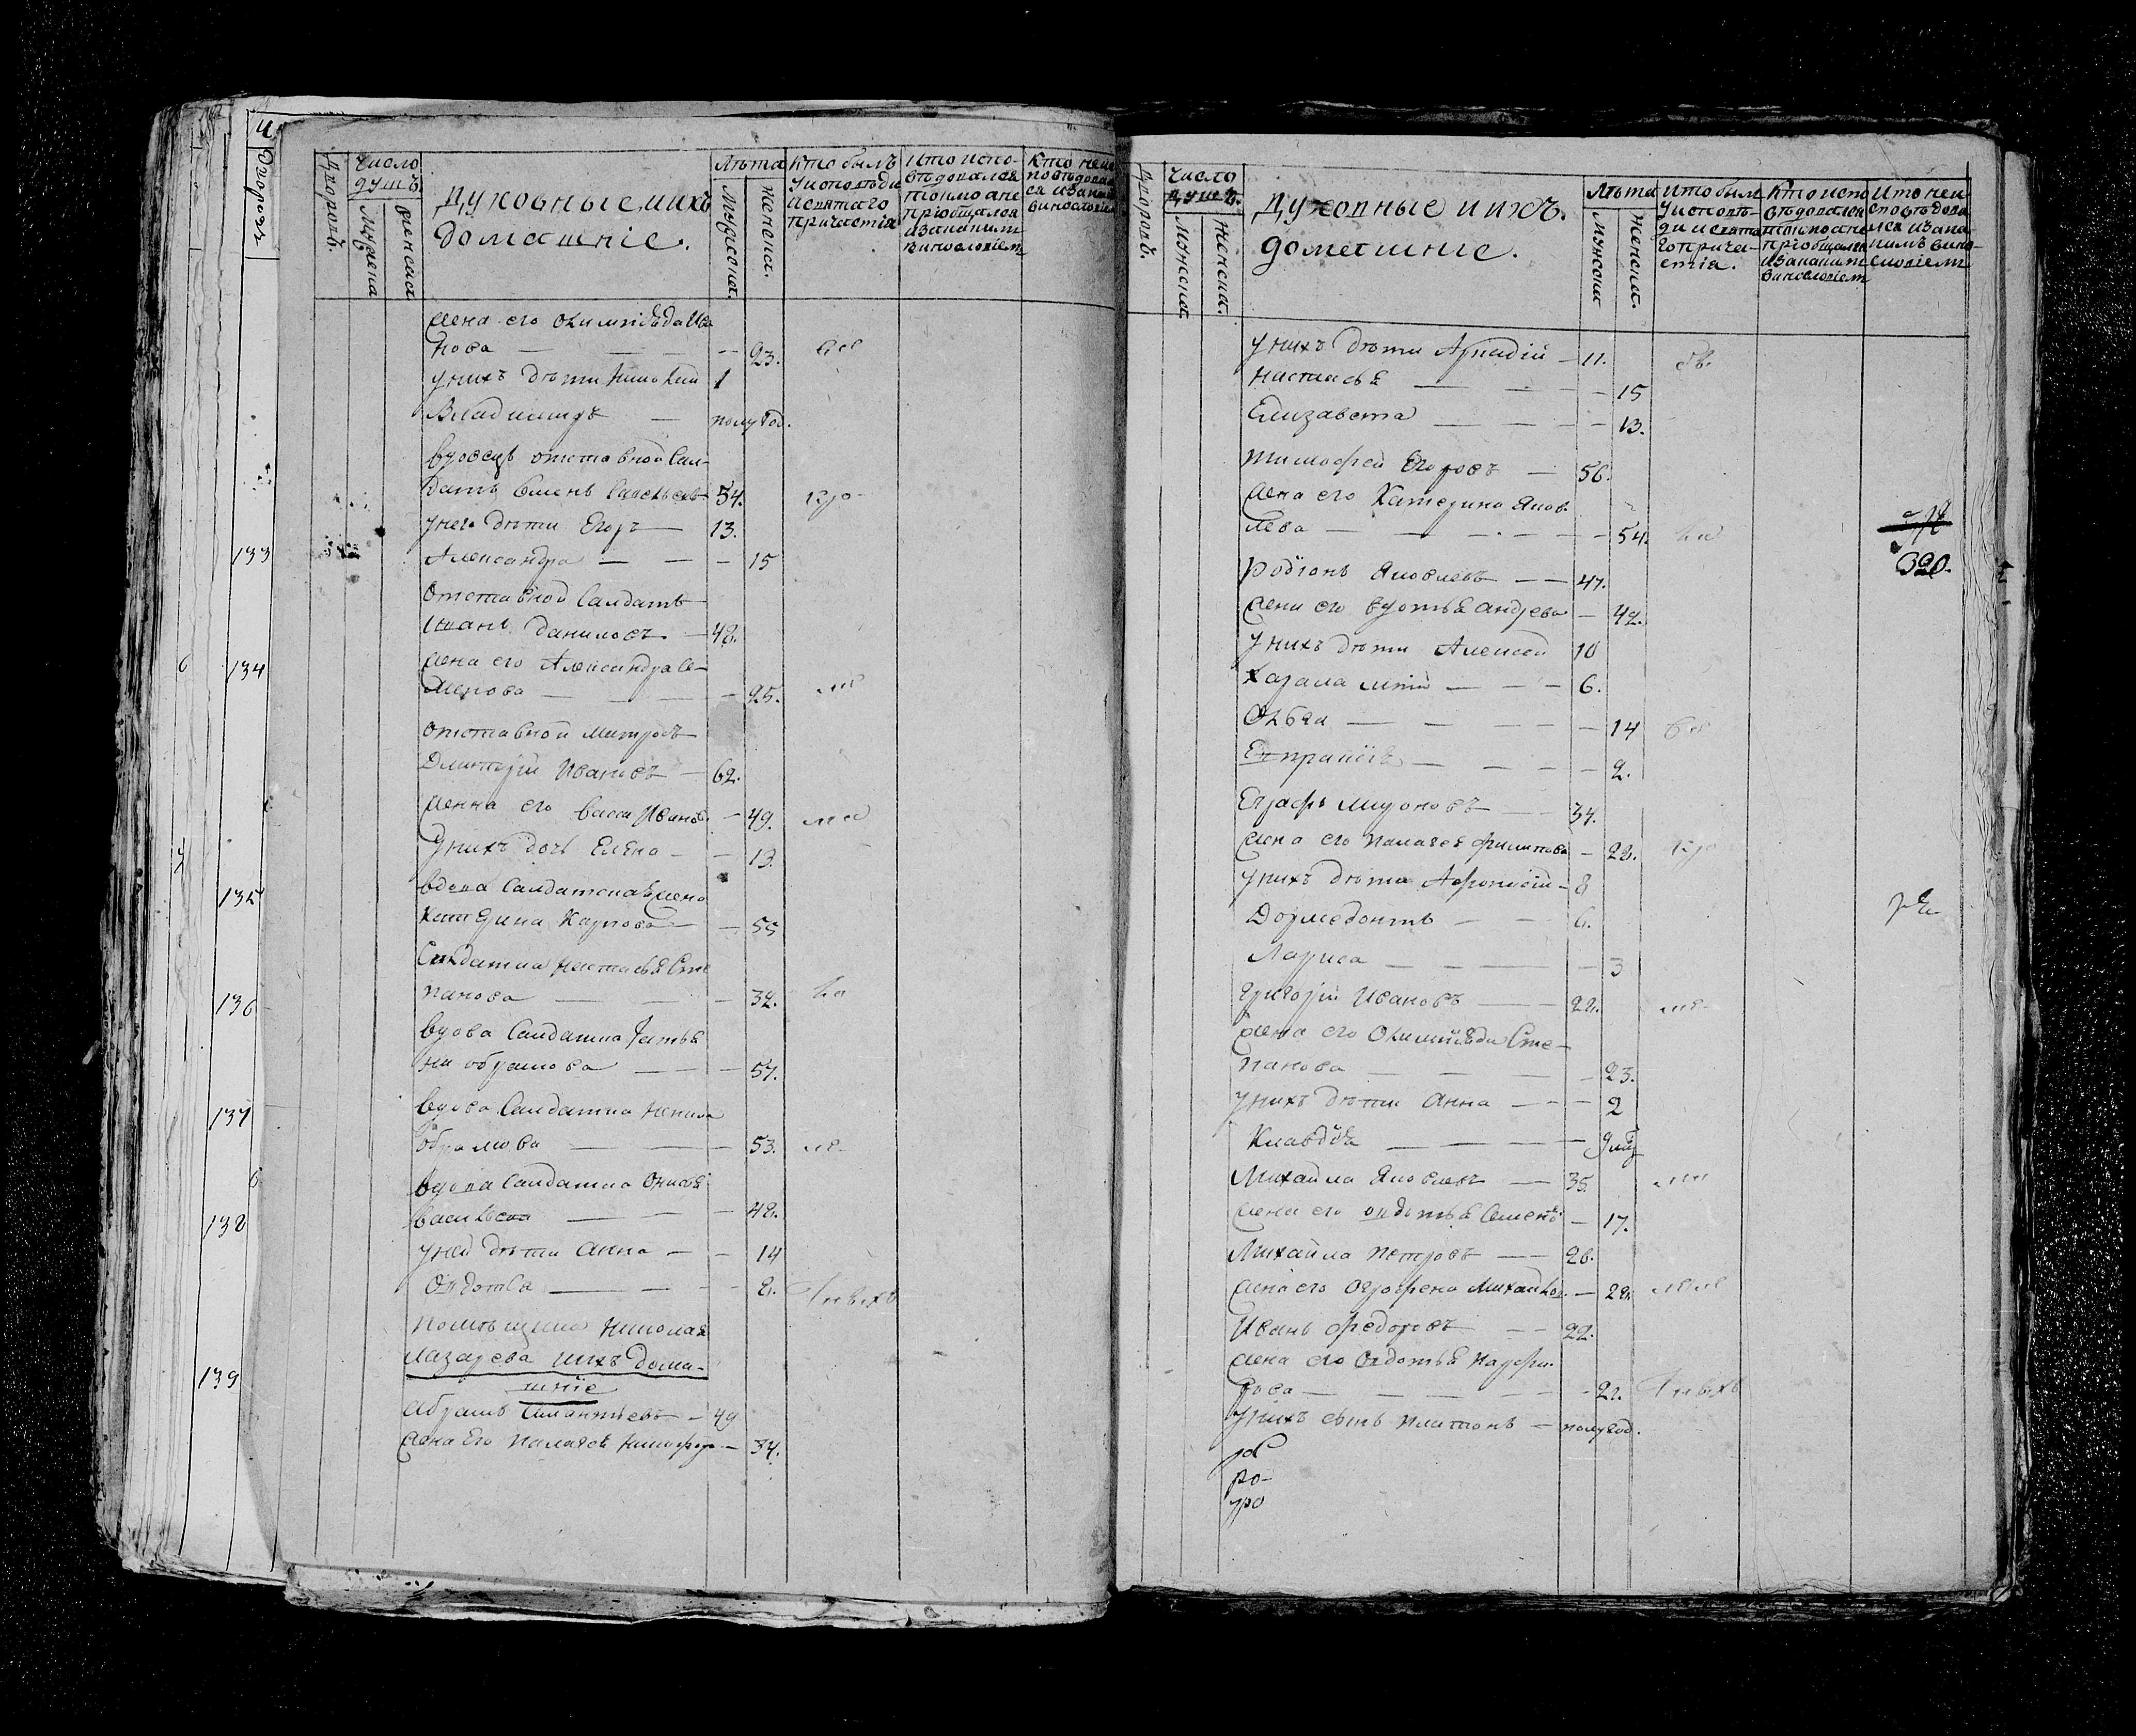 Дворовъ.
Число
душъ
Мужеска
Женска
Духовные и ихъ
домашніе.
Лѣта
Мужеска.
Женска.
Кто былъ
у исповѣди
и святаго
причастія
Кто испо-
вѣдовался
токмо а не
пріобщался
и за какимъ
винословіем
133
134
135
136
137
138
139
жена его Олимпіада Ива
нова — 23.
у нихъ дѣти Николай 1
Владимиръ — полугод.
вдовецъ отставной сал-
датъ Семенъ Савельевъ 54.
у него дѣти Егоръ — 13.
Александра — 15
Отставной салдатъ
Иванъ Даниловъ — 48.
жена его Александра Се-
менова — 25.
отставной матрозъ
Дмитрій Ивановъ — 62.
женна его Васса Иванов. — 49.
у нихъ дочь Елена — 13.
вдова салдатска жена
Катерина Карпова — 55
Салдатка Настасья Сте
панова — 32.
вдова салдатка Татья
на Обрамова — 57.
вдова салдатка Ненила
Обрамова — 53.
вдова салдатка Онисья
Васильева — 48.
у ней дѣти Анна — 14
Овдотья — 8.
помѣщика Николая
Лазарева и ихъ дома-
шніе
Абрамъ — 49
жена его Палагея Никофор. — 34.
Дворовъ.
Число
душъ.
Мужеска
Женска.
Духовные и ихъ
домашніе.
Лѣта
Мужеска
Женска.
Кто был
у исповѣ-
ди и свята
го прича-
стія.
Кто испо
вѣдовался
токмо а не
пріобщался
и за какимъ
винословіем
Кто не и
сповѣдова
лся и за ка-
кимъ вино-
словіем
у нихъ дѣти Аркадій — 11.
Настасья — 15
Елизавета — 13.
Тимофей Егоровъ — 56.
жена его Катерина Яков.
лева — 54.
Родіонъ Яковлевъ — 47.
жена его Андреева — 42.
у нихъ дѣти Алексей 10
Харлампій — 6.
Ольга — 14
Евпраксія — 2.
Еграфъ Мироновъ — 34.
жена его Палагея Филипова — 28.
у нихъ дѣти Афонасій — 8
Дормедонтъ — 6.
Лариса — 3
Григорій Ивановъ — 22.
жена его Олимпіяда Сте-
панова — 23.
у нихъ дѣти Анна — 2
Клавдія —
Михайла Яковлевъ — 35.
жена его Овдотья Семен. — 17.
Михайла Петровъ — 26.
жена его Огрофена Михайло. — 28.
Иванъ Федоровъ — 22.
жена его Овдотья Парфи.
рова — 21.
у нихъ сынъ Платонъ — полугод.
ро-
уро
320.